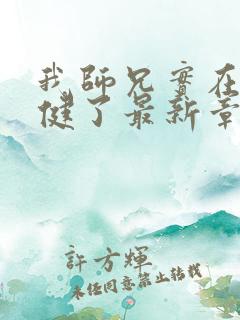 我師兄實在
健了最新章
許方輝
未經同意禁止轉載